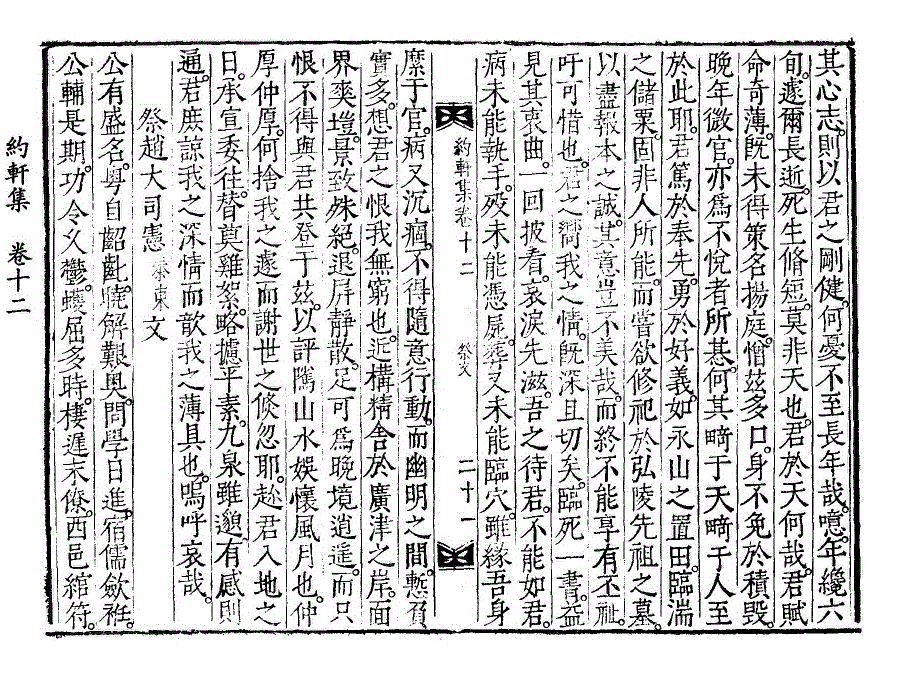 其心志。則以君之剛健。何憂不至長年哉。噫。年纔六
旬。遽爾長逝。死生脩短。莫非天也。君於天何哉。君賦
命奇薄。旣未得策名揚庭。憎玆多口。身不免於積毁。
晚年微官。亦爲不悅者所惎。何其畸于天畸于人至
於此耶。君篤於奉先。勇於好義。如永山之置田。臨湍
之儲粟。固非人所能。而嘗欲修祀於弘陵先祖之墓。
以盡報本之誠。其意豈不美哉。而終不能享有丕祉。
吁可惜也。君之嚮我之情。旣深且切矣。臨死一書。益
見其衷曲。一回披看。哀淚先滋。吾之待君。不能如君。
病未能執手。歿未能憑屍。葬又未能臨穴。雖緣吾身
約軒集卷十二 祭文 二十一
縻于官。病又沉痼。不得隨意行動。而幽明之間。慙負
實多。想君之恨我無窮也。近構精舍於廣津之岸。面
界爽塏。景致殊絕。退屛靜散。足可爲晚境逍遙。而只
恨不得與君共登于玆。以評隲山水娛懷風月也。仲
厚仲厚。何捨我之遽而謝世之倐忽耶。趁君入地之
日。承宣委往。替奠雞絮。略攄平素。九泉雖邈。有感則
通。君庶諒我之深情而歆我之薄具也。嗚呼哀哉。
祭趙大司憲 泰東 文
公有盛名。粤自齠齔。曉解艱奧。問學日進。宿儒斂袵。
公輔是期。功令乆鬱。蠖屈多時。棲遲末僚。西邑綰符。
約軒集 卷十二